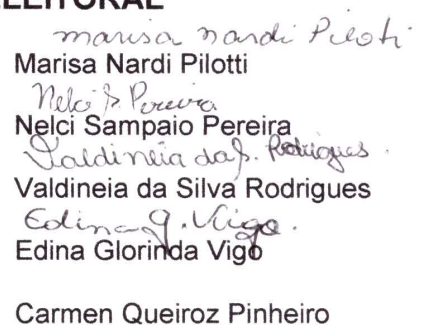 ELEITORAL
marisa nardi Piloti
Marisa Nardi Pilotti
Nelci S Pereira
Nelci Sampaio Pereira
Valdineia da S. Rodrigues.
Valdineia da Silva Rodrigues
Edina G. Vigo.
Edina Glorinda Vigo
Carmen Queiroz Pinheiro